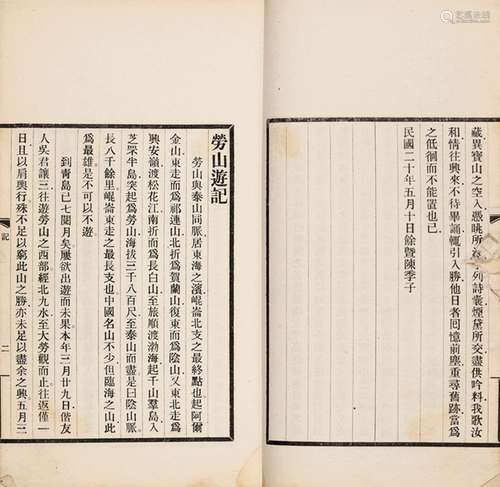 藏異寶山之空人憑眺所列詩叢煙黛所交盡供吟料我歌汝
和情往興來不待畢誦輒引入勝他日者囘憶前塵重尋舊跡當爲
之低徊而不能置也已
民國二十年五月十日餘暨陳季子
勞山遊記
勞山與泰山同脈居東海之濱崐崙北支之最終點也起阿爾
金山東走而爲祁連山北折爲賀蘭山復東而爲陰山又東北走爲
興安嶺渡松花江南折而爲長白山至旅順渡渤海起千山羣島入
芝罘半島突起爲勞山海拔三千八百尺至泰山而盡是曰陰山脈
長八千餘里崐崙東走之最長支也中國名山不少但臨海之山此
爲最雄是不可以不遊
到青島已七閱月矣屢欲出遊而未果本年三月廿九日偕友
人吳君讓三往遊勞山之西部經北九水至大勞觀而止往返僅一
日且以肩輿行殊不足以窮此山之勝亦未足以盡余之興五月三
記
二